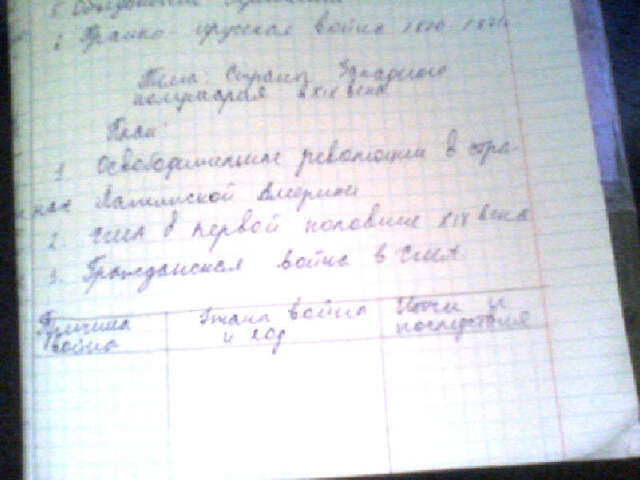 5 Объединение Германии
6 Франко-прусская война 1870-1871
Тема: Страны Западного
полушария в XIX веке
План:
1. Освободительные революции в стра-
нах Латинской Америки
2. США в первой половине XIX века
3. Гражданская война в США.
Причина войны
Этапы войны и ход
Итоги и последствия